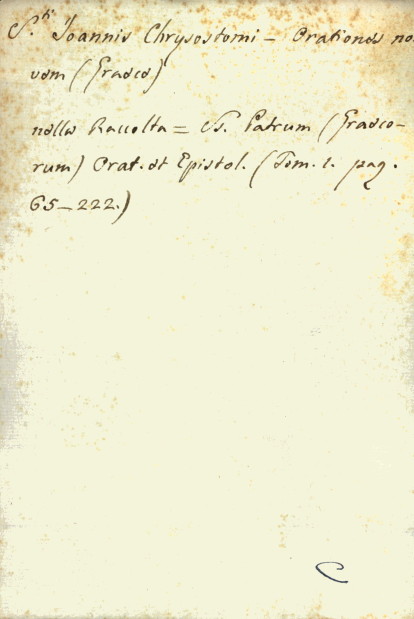 S.ti Joannis Chrysostomi – Orationes no-
vem (Graece)
nella Raccolta = SS. Patrum (Graeco-
rum) Orat. et Epistol. (Tom. 1. pag.
65–222.)
C